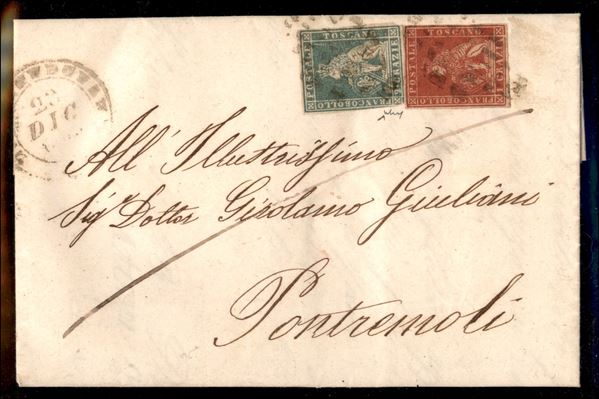 FRANCOBOLLO POSTALE TOSCANO
FRANCOBOLLO POSTALE TOSCANO 1 CRAZIA
DIC
All' Illustrissimo
Sig Dottor Girolamo Giuliani
Pontremoli